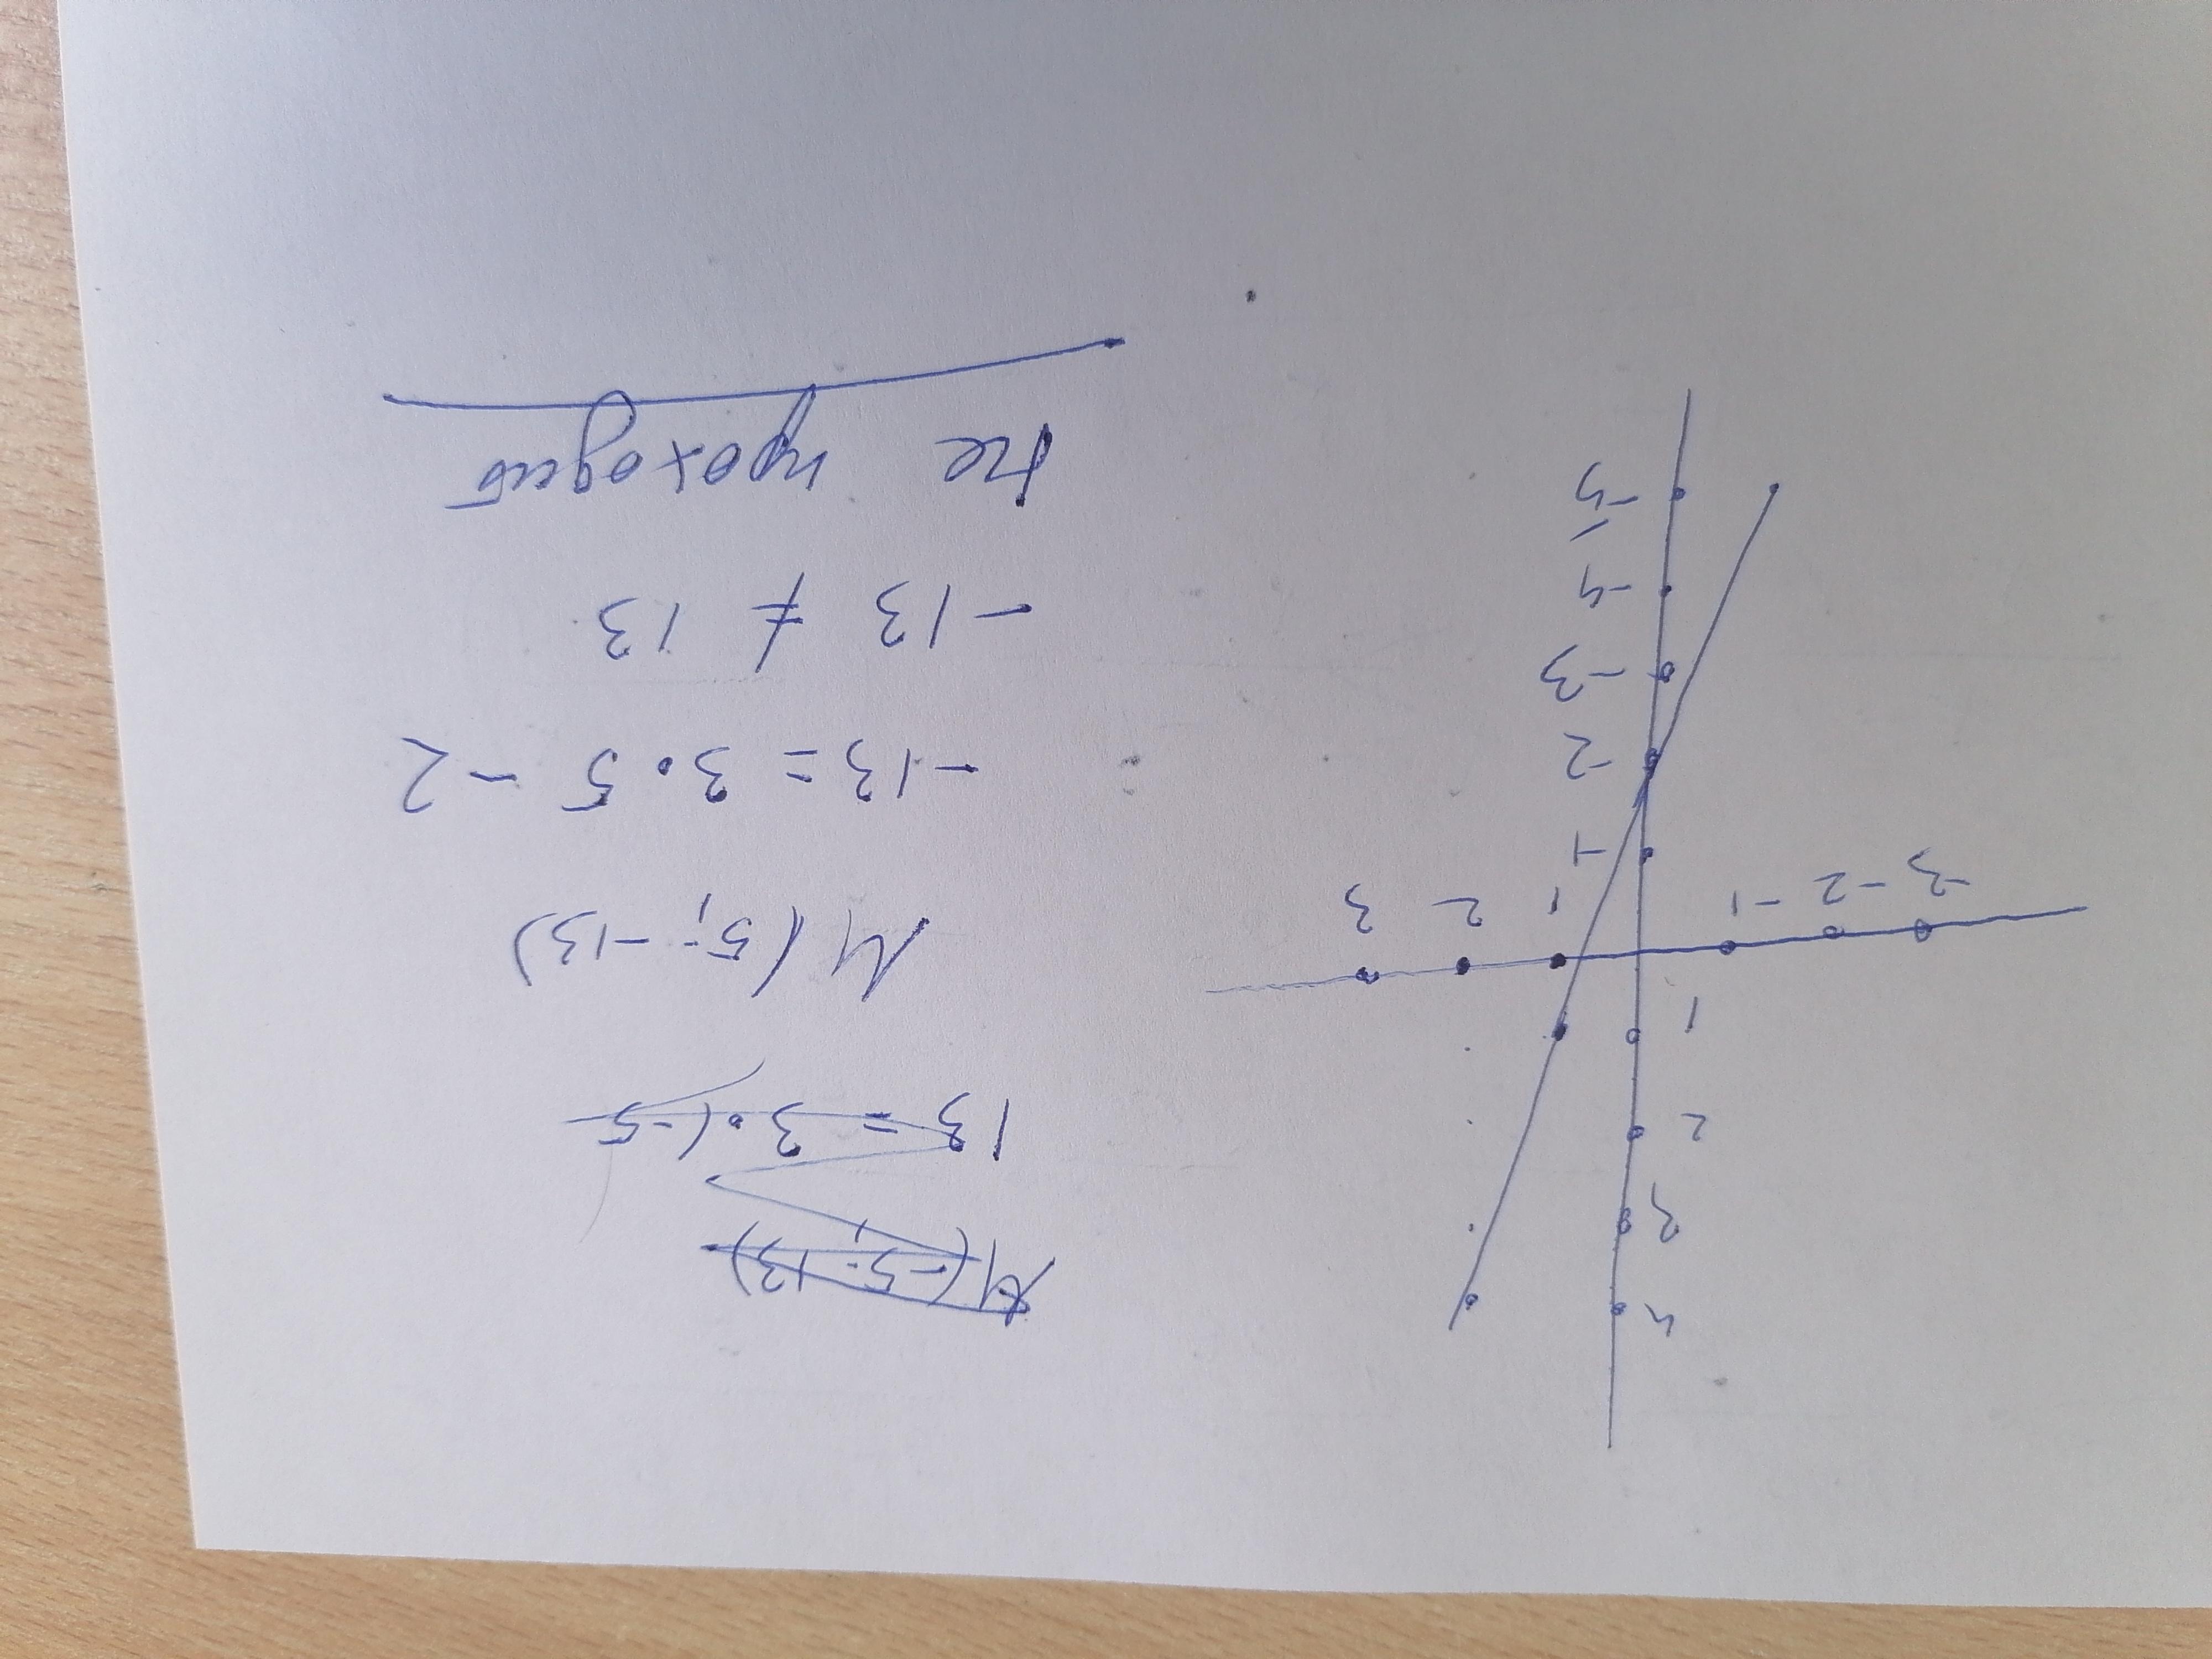 4
3
2
1
-3 -2 -1 1 2 3
-1
-2
-3
-4
-5
M(-5; 13)
13 = 3·(-5
M(5; -13)
-13 = 3·5 - 2
-13 ≠ 13
не проходит